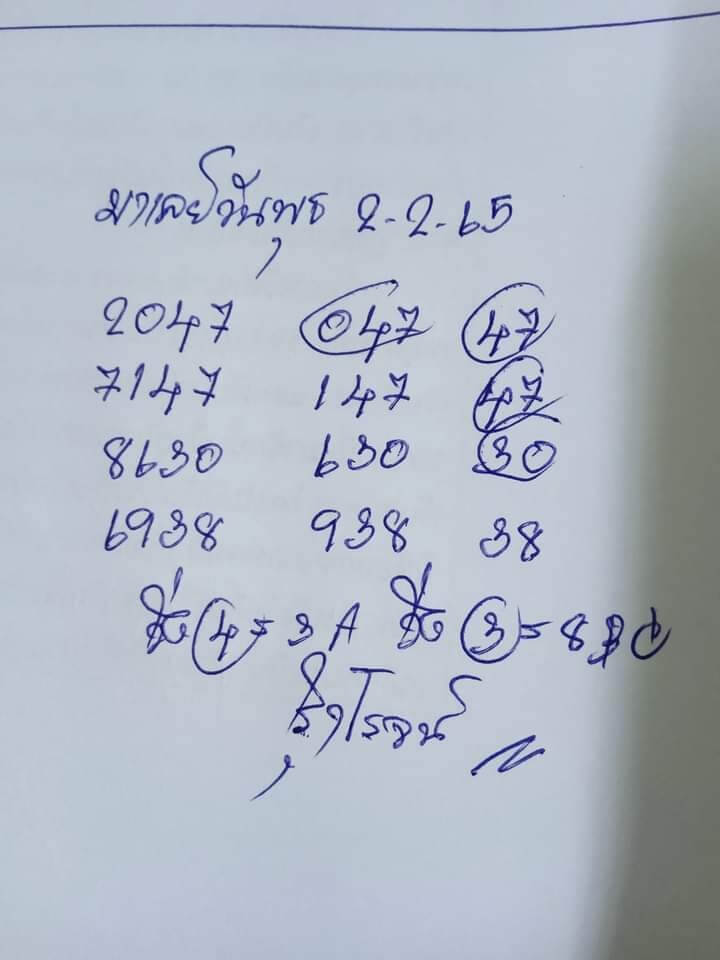 มาเลย์วันพุธ 2-2-65
2047 047 47
7147 147 47
8630 630 30
6938 938 38
4 = 3 A 3 = 8